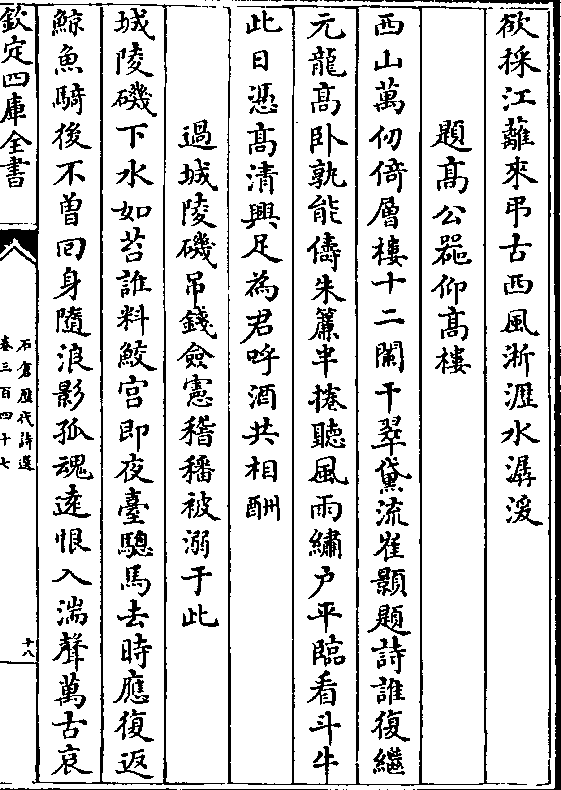 欲採江蘺來弔古西風淅瀝水潺湲
題高公器仰高樓
西山萬仞倚層樓十二闌干翠黛流崔顥題詩誰復繼
元龍高臥孰能儔朱簾半捲聽風雨繡戶平臨看斗牛
此日憑高清興足為君呼酒共相酬
過城陵磯吊錢僉憲稽穡被溺于此
城陵磯下水如苔誰料鮫宫即夜臺驄馬去時應復返
鯨魚騎後不曽回身隨浪影孤魂遠恨入湍聲萬古哀
欽定四庫全書
石倉歷代詩選
卷三百四十七
十八